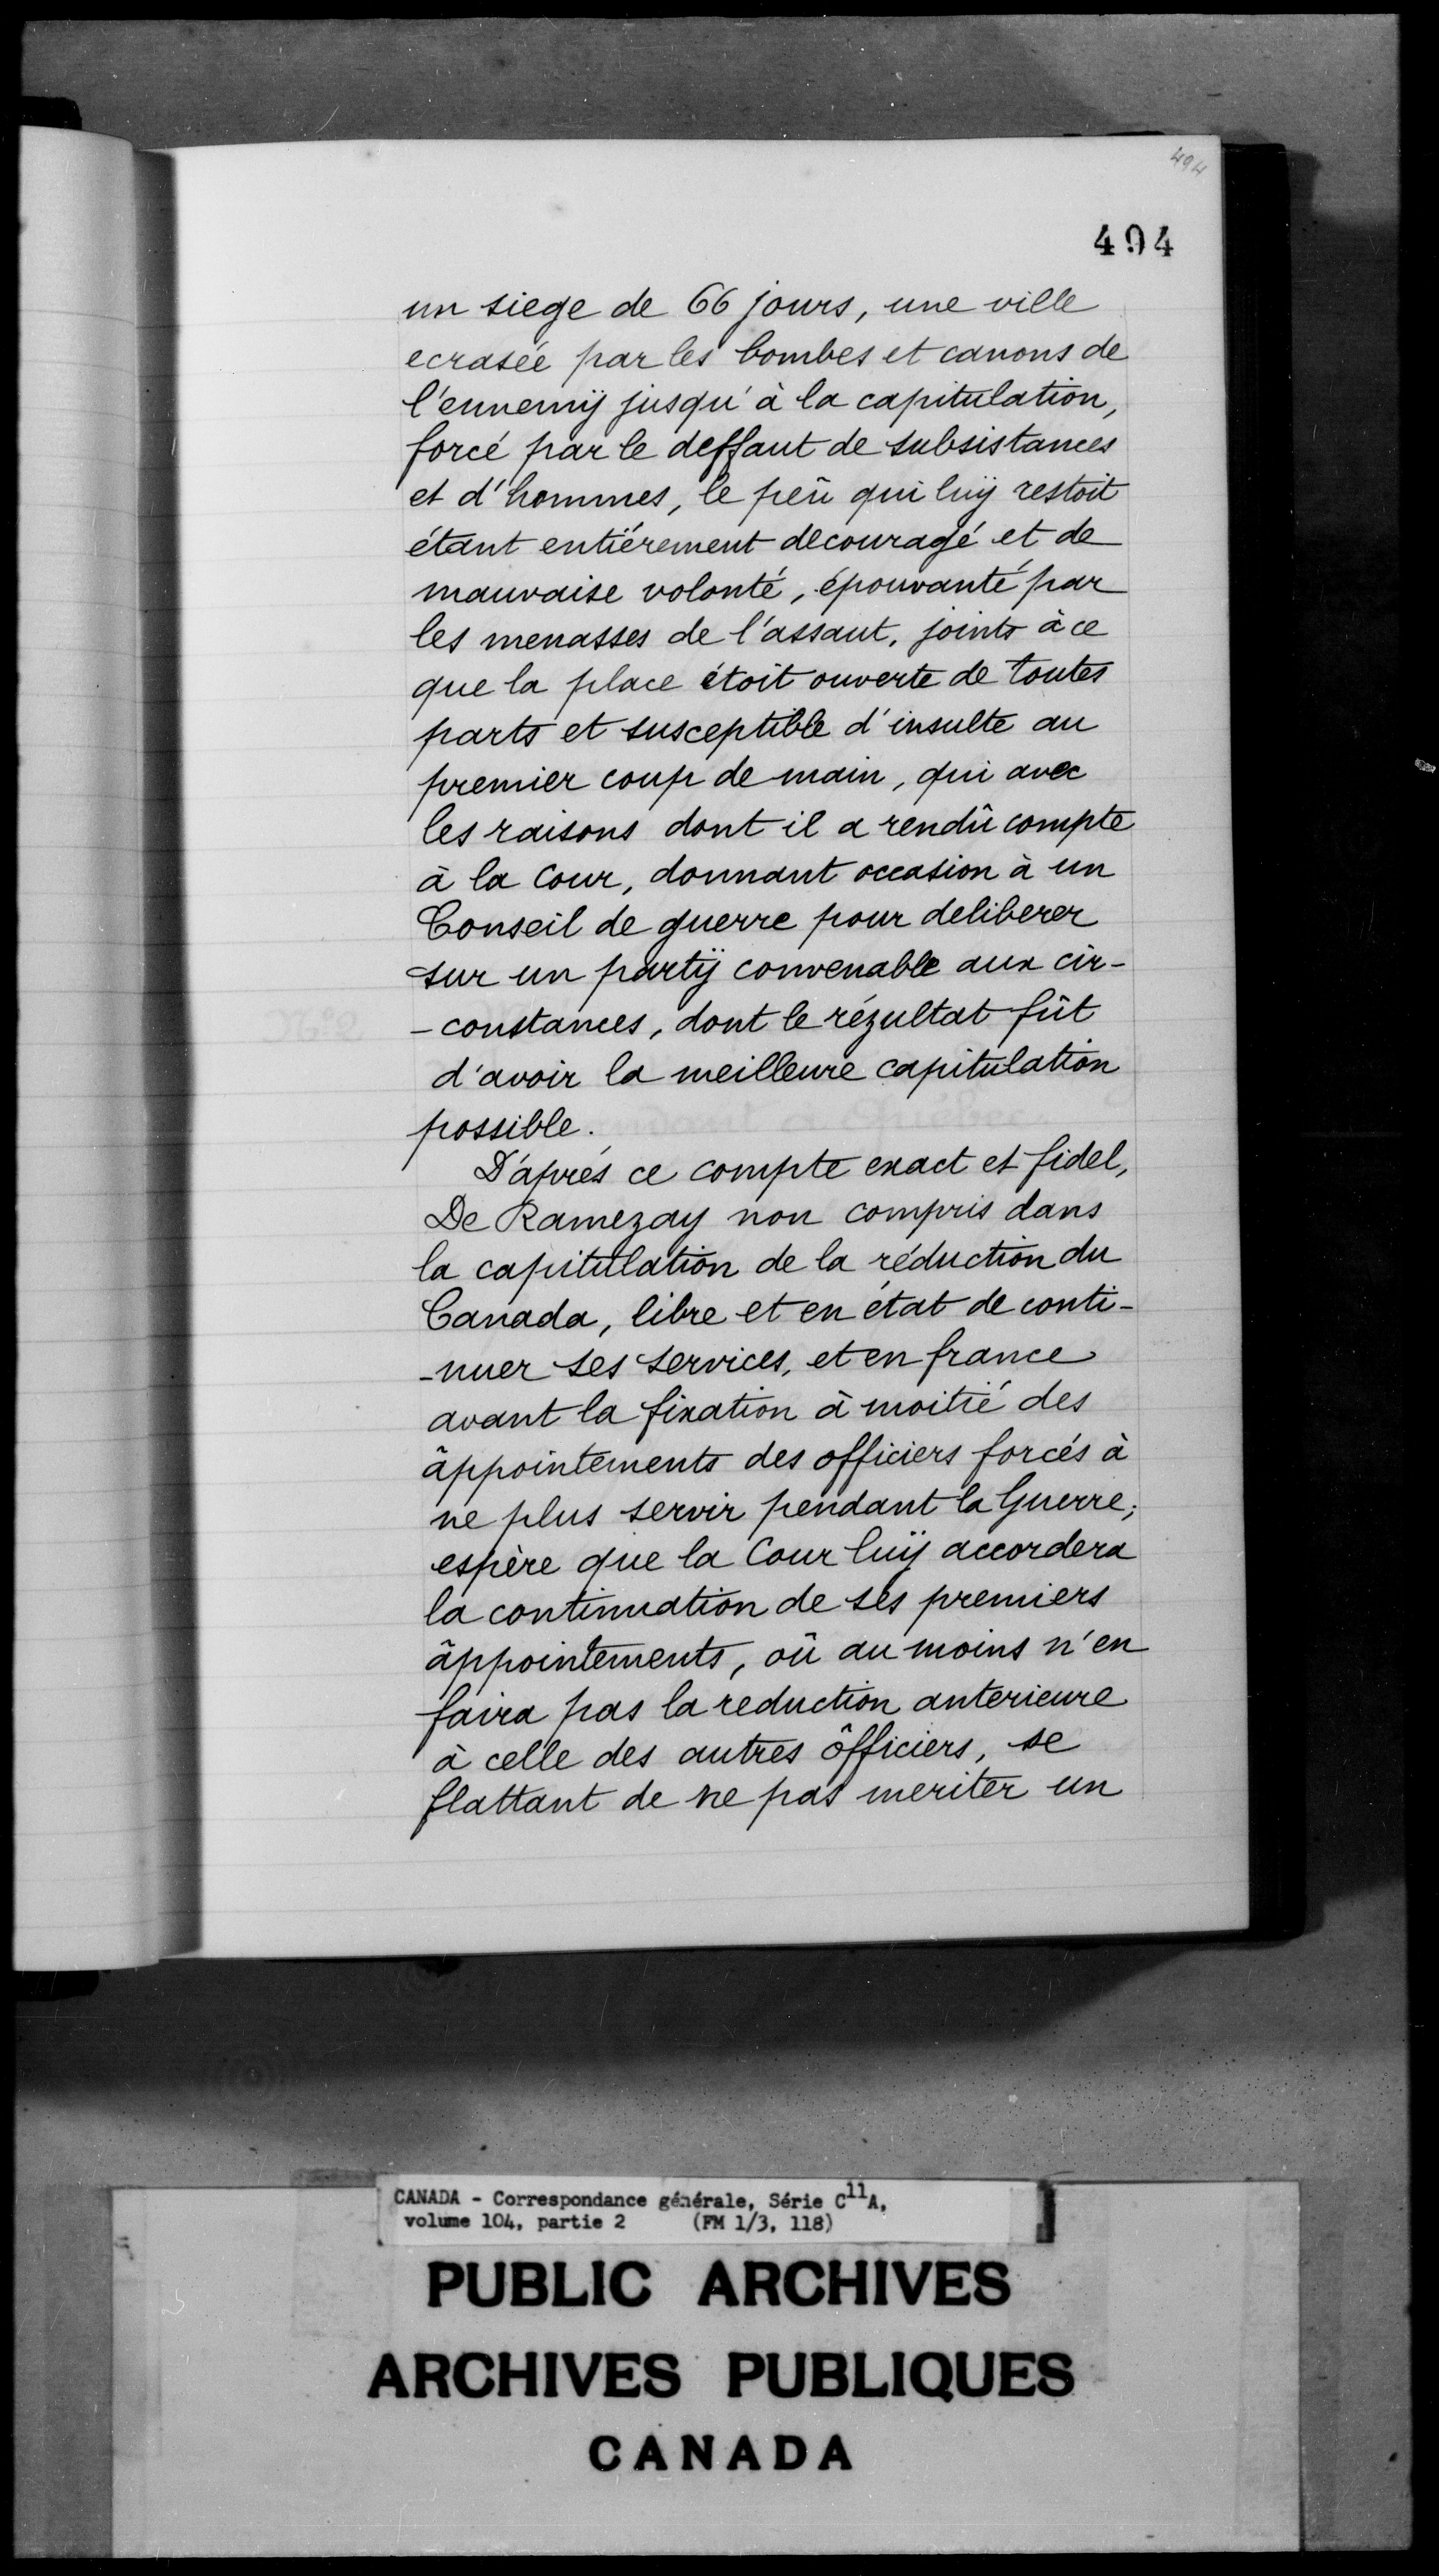 494
494
un siege de 66 jours, une ville
ecrasée par les bombes et canons de
l'ennemÿ jusqu'à la capitulation,
forcé par le deffaut de subsistances
et d'hommes, le peû qui luÿ restoit
étant entiérement decouragé et de
mauvaise volonté, épouvanté par
les menasses de l'assaut, joints à ce
que la place étoit ouverte de toutes
parts et susceptible d'insulte au
premier coup de main, qui avec
les raisons dont il a rendû compte
à la Cour, donnant occasion à un
Conseil de guerre pour deliberer
sur un partÿ convenable aux cir-
-constances, dont le rézultat fût
d'avoir la meilleure capitulation
possible.
D'aprés ce compte exact et fidel,
De Ramezay non compris dans
la capitulation de la réduction du
Canada, libre et en état de conti-
-nuer ses services, et en france
avant la fixation à moitié des
âppointements des officiers forcés à
ne plus servir pendant la Guerre;
espère que la Cour luÿ accordera
la continuation de ses premiers
âppointements, oû au moins n'en
faira pas la reduction anterieure
à celle des autres ôfficiers, se
flattant de ne pas meriter un
CANADA - Correspondance générale, Série C11A,
volume 104, partie 2 (FM 1/3, 118)
PUBLIC ARCHIVES
ARCHIVES PUBLIQUES
CANADA